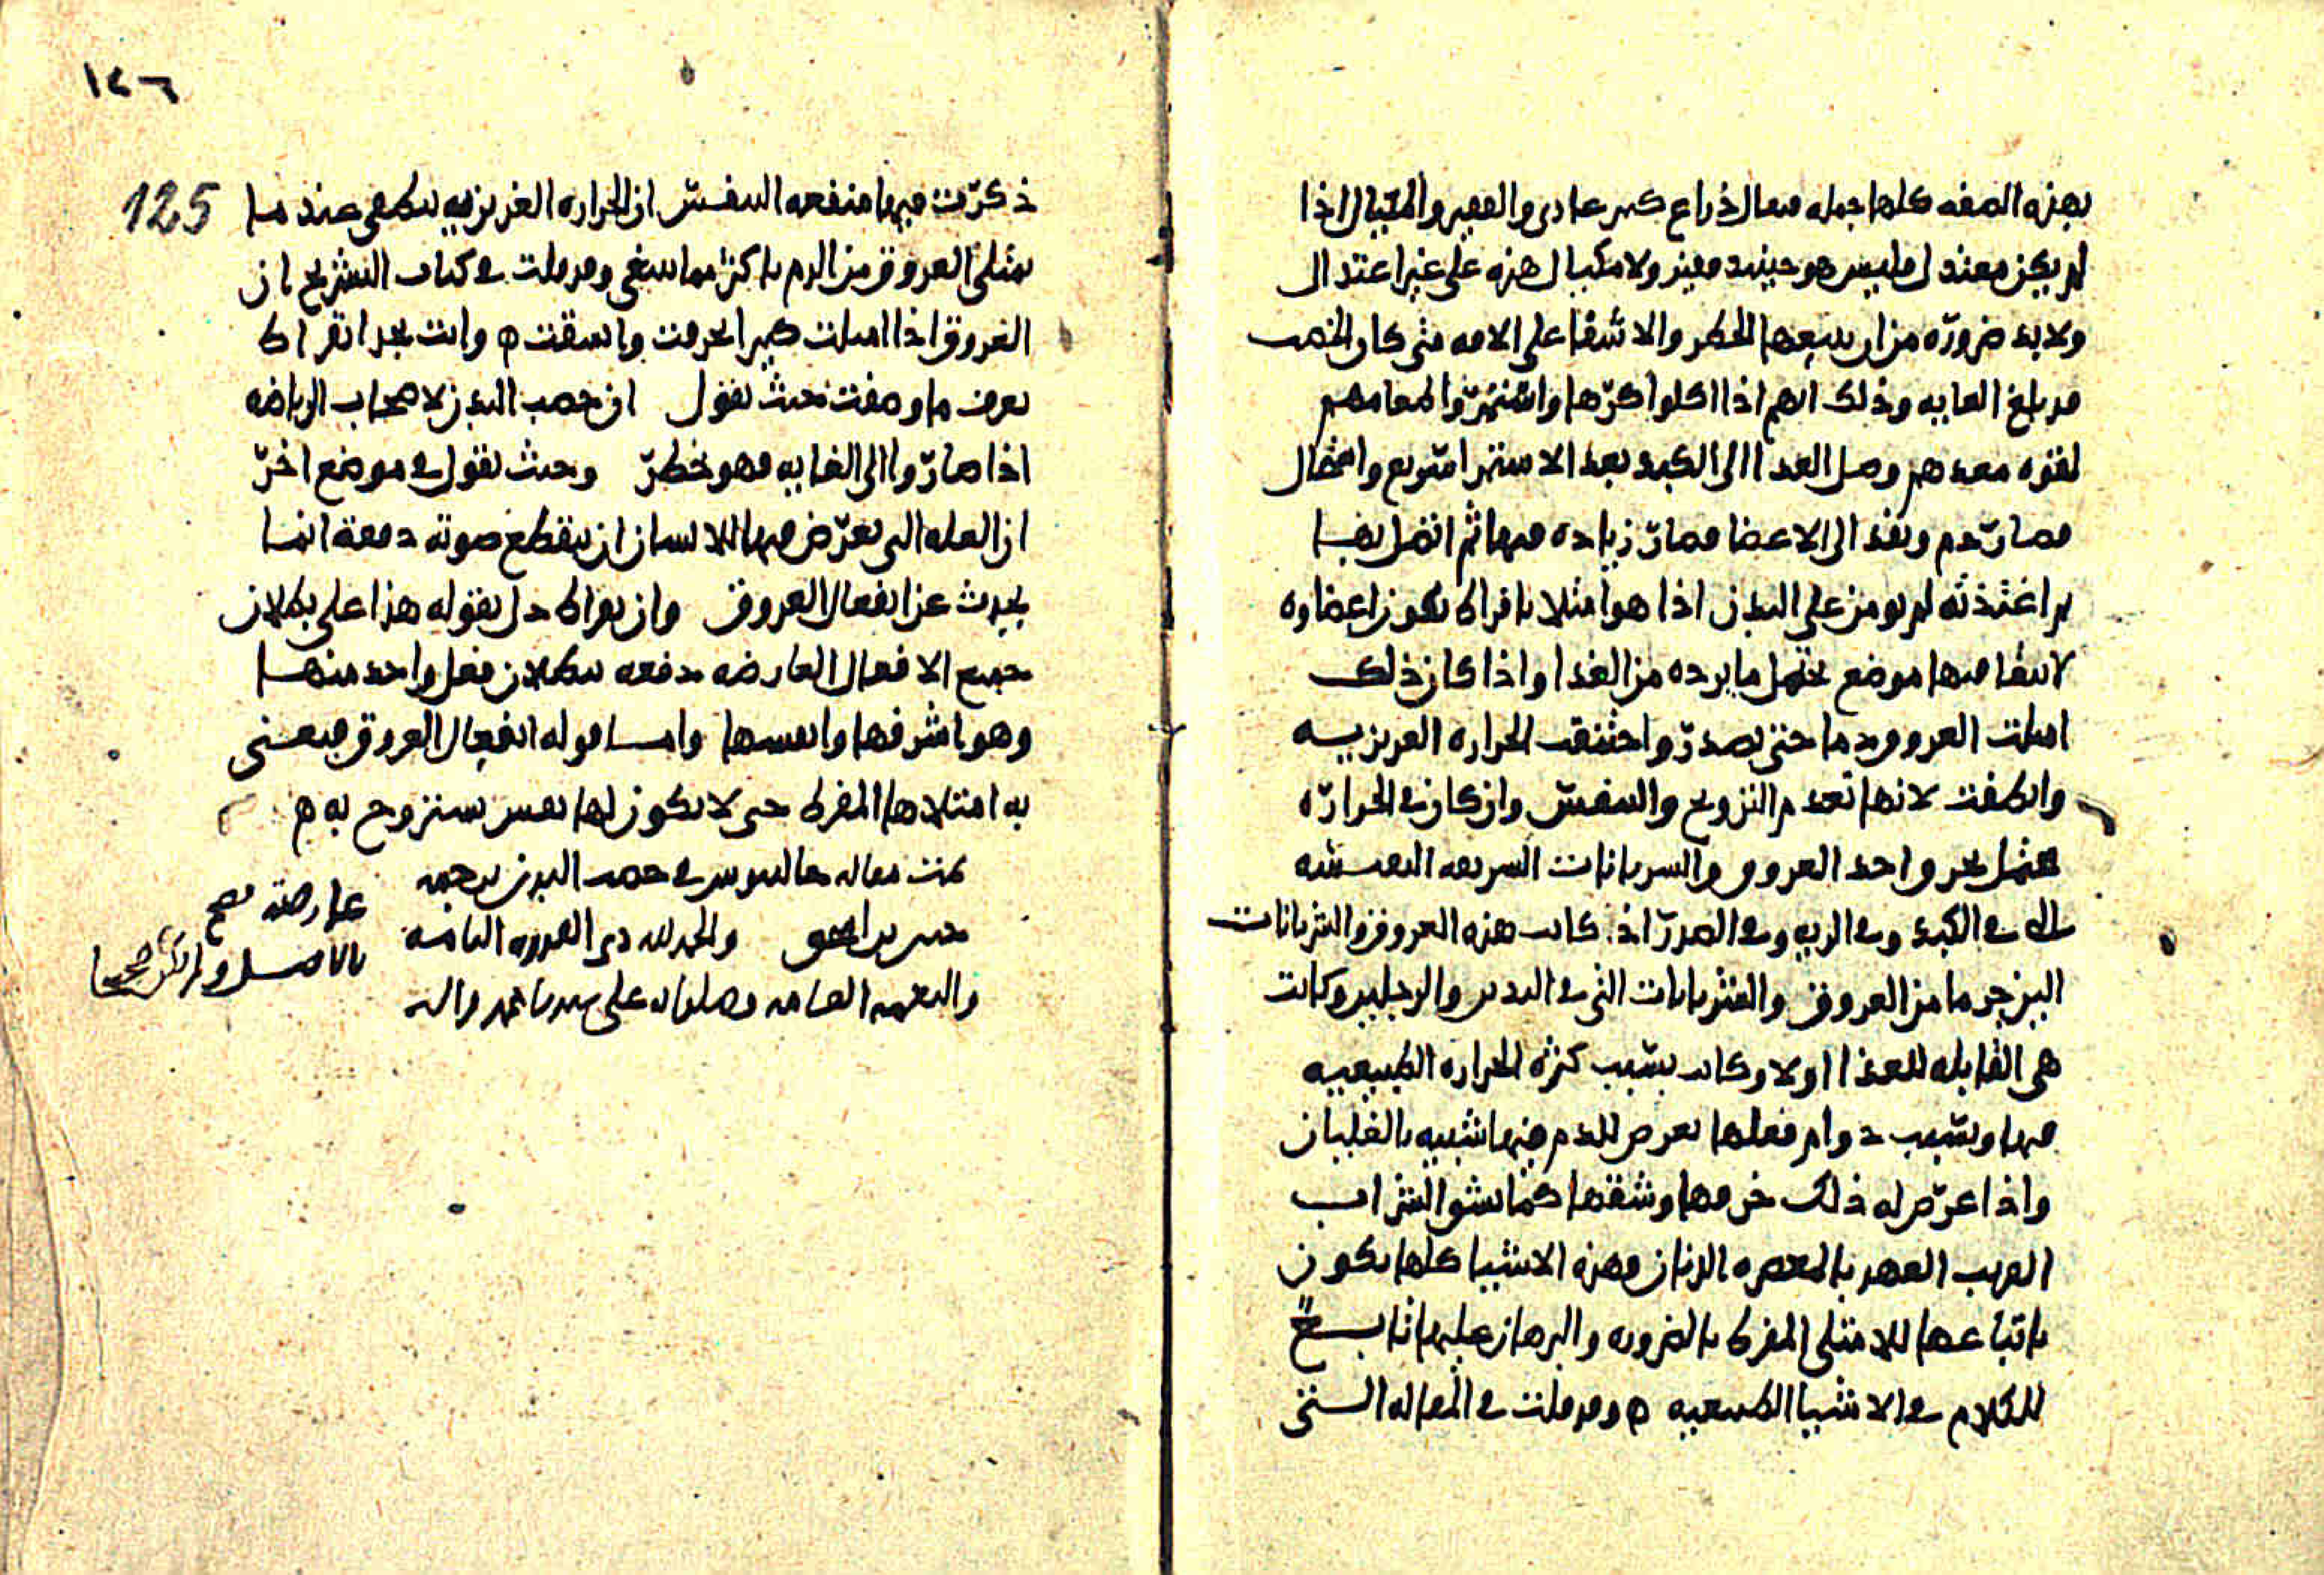 بهذه الصفه كلها جمله فيقال ذراع كبير عادى والقفيز والمكيال اذا
لم يكن معتدل فليس هو حينيد قفيز ولا مكيال هذه على غير اعتدال
ولابد ضروره من ان يتبعها الخطر والاشفا على الافه متى كان الخصب
قد بلغ الغايه وذلك انهم اذا اكلوا كرها واستمروا لطعامهم
لقوه معدهم وصل الغدا الى الكبد بعد الاستمرا سريع وانتقال
فصار دم ونفذ الى الاعضا فصار زياده فيها ثم اتصل بها
اغتذته لم يومن على البدن اذا هو امتلا بافراط تكون اعضاوه
لا يبقا فيها موضع يحتمل ما يرده من الغدا واذا كان ذلك
امتلت العروق دما حتى تصدر واختنقت الحراره الغريزيه
وانطفت لانها تعدم التروح والتنفس وان كان فى الحراره
محتمل بحر واحد العروق والشريانات السريعه
التى فى الكبد وفى الريه وفى الصدر اذ كانت هذه العروق والشريانات
الين جرما من العروق والشريانات التى فى اليدين والرجلين وكانت
هى القابله للغذا اولا وكانت بسبب كثره الحراره الطبيعيه
فيها وبسبب دوام فعلها يعرض للدم فيها شبيه بالغليان
واذا عرض له ذلك خرقها وشقها كما يشق الشراب
القريب العهد بالمعصره الدنان وهذه الاشيا كلها يكون
باتباعها للامتلى المفرط بالضروره والبرهان عليها تابـــع
للكلام فى الاشيا الطبيعيه ه وقد قلت فى المقاله الـــتى
١٢٦
125
ذكرت فيها منفعه التنفس ان الحراره الغريزيه تنطفى عند ما
تمتلى العروق من الدم باكثر مما ينبغى وقد قلت فى كتاب التشريح ان
العروق اذا امتلت كثيرا انخرقت وانشقت ه وانت تجد ابقراط
يعرف ما وصفت حيث يقول ان خصب البدن لاصحاب الرياضه
اذا صاروا الى الغايه فهو خطر وحيث يقول فى موضع اخر
ان العله التى يعرض فيها للانسان ان ينقطع صوته دفعة انما
يحدث عن انفعال العروق وان بقراط دل بقوله هذا على بطلان
جميع الافعال العارضه دفعه ببطلان فعل واحد منها
وهو اشرفها وانفسها وامـــا قوله انفعال العروق فيعنى
به امتلاها المفرط حتى لا يكون لها نفس يستروح به ه
تمت مقاله جالينوس فى خصب البدن ترجمه
حنين بن اسحق والحمد لله ذى القدره التامه
والنعمه العامه وصلواته على سيدنا محمد واله
عارضته فصح
بالاصل ولم يكن صحيحا